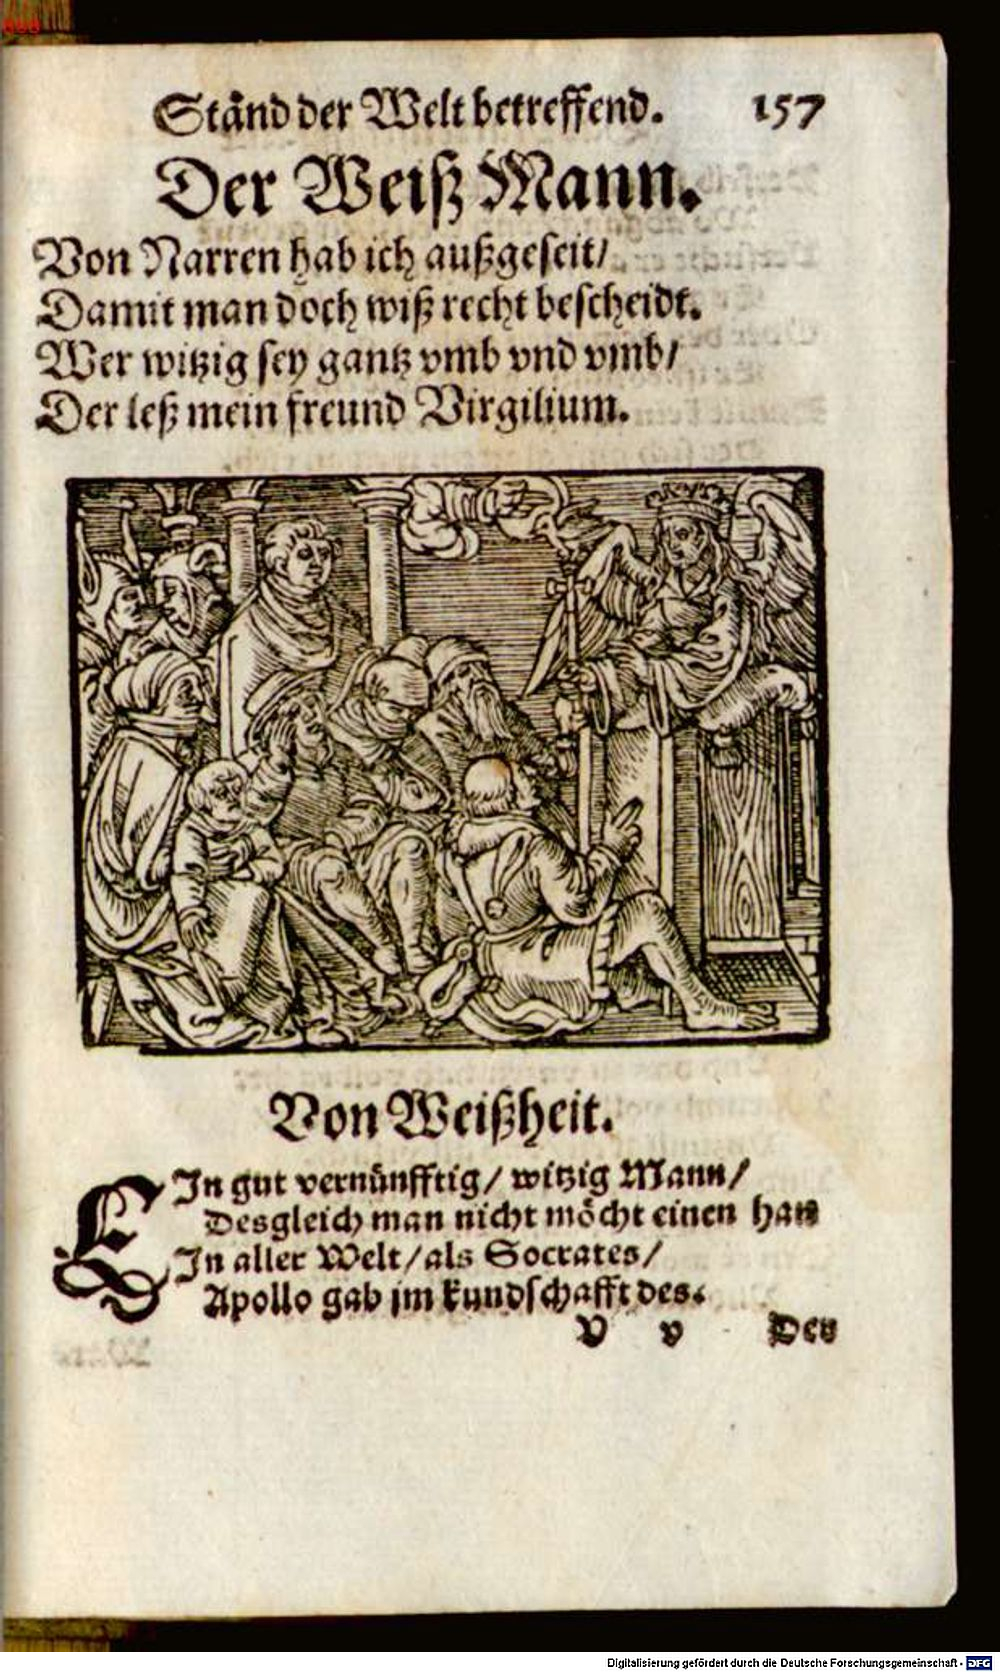 Ständ der Welt betreffend. 157
Der Weiß Mann.
Von Narren hab ich außgeseit/
Damit man doch wiß recht bescheidt.
Wer witzig sey gantz vmb vnd vmb/
Der leß mein freund Virgilium.
Von Weißheit.
EIn gut vernünfftig/ witzig Mann/
Desgleich man nicht möcht einen han
In aller Welt/ als Socrates/
Apollo gab jm kundschafft des.
V v Der
Digitalisierung gefördert durch die Deutsche Forschungsgemeinschaft - DFG